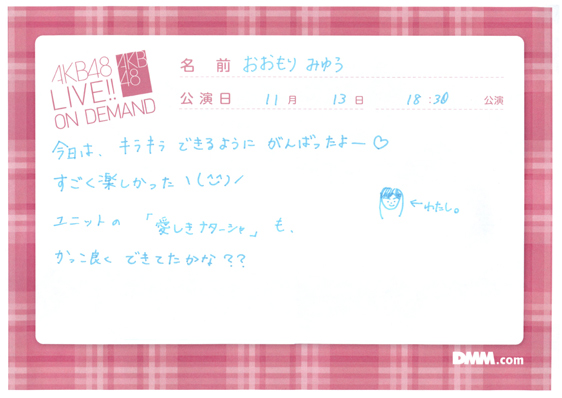 AKB48
LIVE!!
ON DEMAND
AKB
48
名 前 おおもり みゅう
公演日 11月 13日 18:30 公演
今日は、キラキラ できるように がんばったよー♡
すごく楽しかった ヽ(^^)ノ
ユニットの 「愛しきナターシャ」 も、
かっこ良く できてたかな??
←わたし。
DMM.com